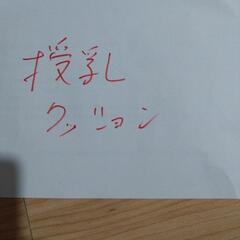 授乳
クッション